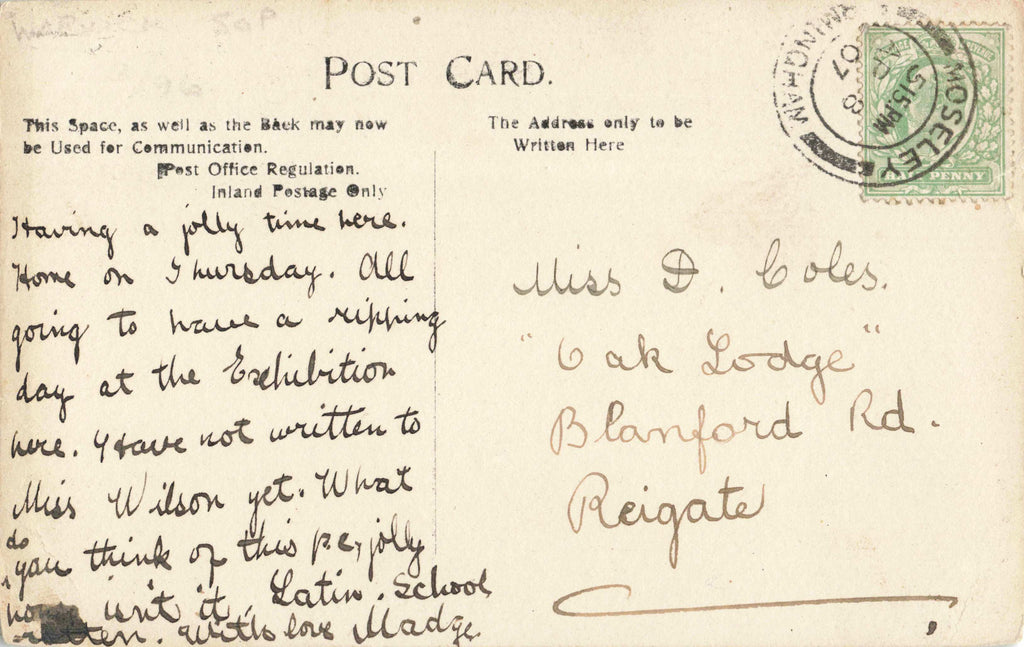 WARWICK 50P
POST CARD.
This Space, as well as the Back may now
be Used for Communication.
Post Office Regulation.
Inland Postage Only
The Address only to be
Written Here
MOSELEY
BIRMINGHAM
5 15 PM
AP 8
07
PENNY
Having a jolly time here.
Home on Thursday. All
going to have a ripping
day at the Exhibition
here. Have not written to
Miss Wilson yet. What
do
you think of this pc, jolly
isn't it. Latin. School
rotten. With love Madge
Miss D. Coles.
"Oak Lodge"
Blanford Rd.
Reigate